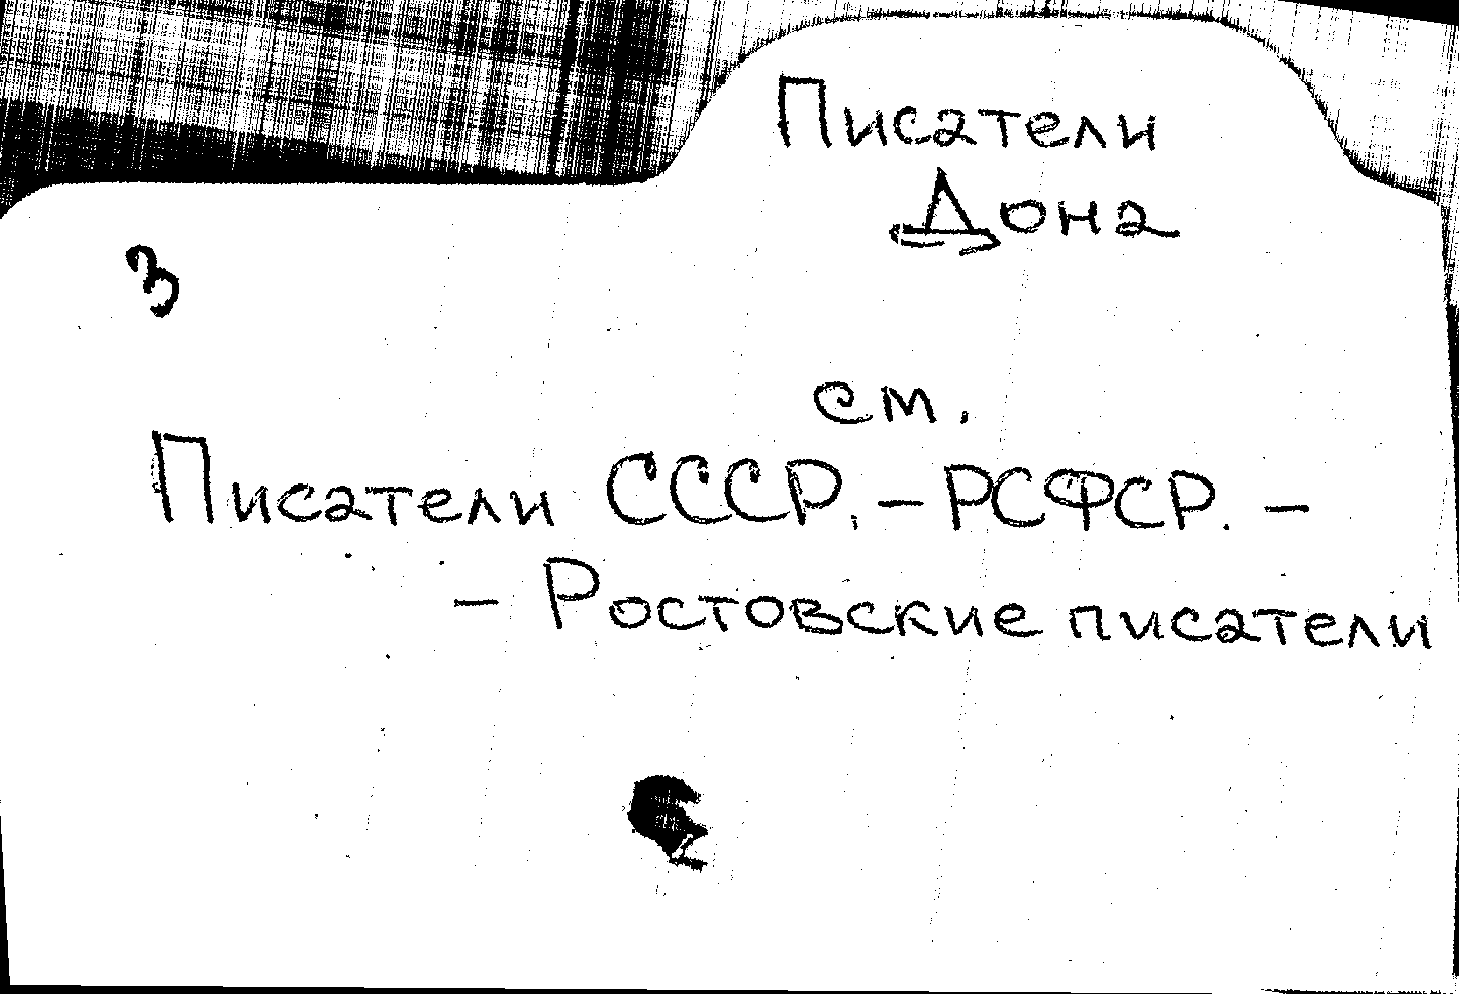 Писатели
Дона
3
см.
Писатели СССР. – РСФСР. –
– Ростовские писатели